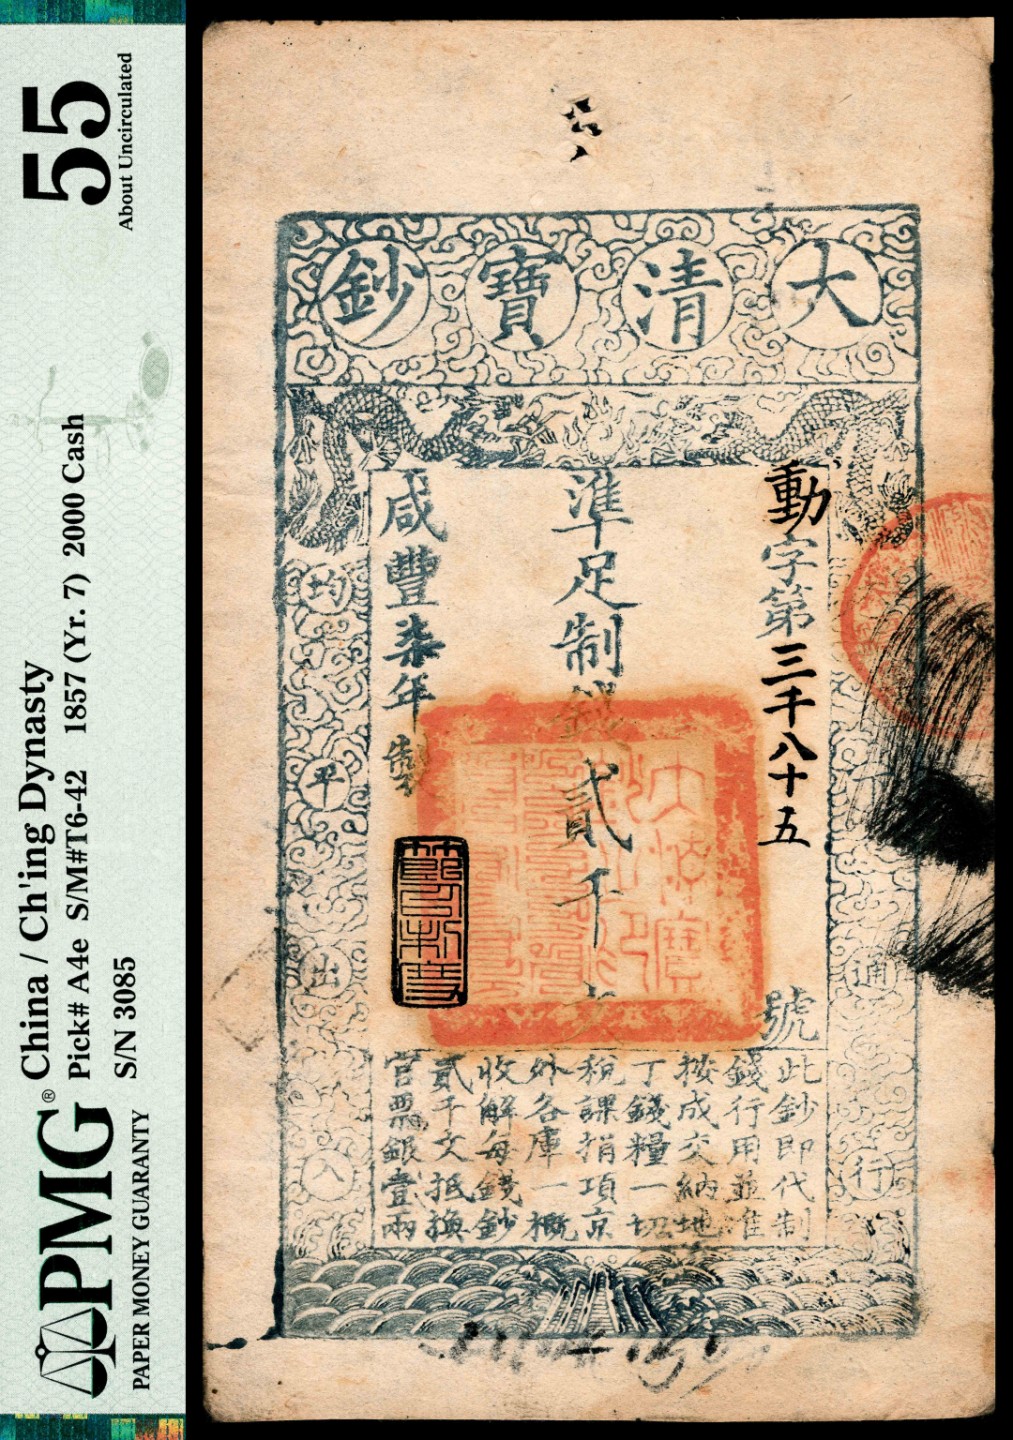 PMG®
PAPER MONEY GUARANTY
China / Ch'ing Dynasty
Pick# A4e S/M#T6-42 1857 (Yr. 7) 2000 Cash
S/N 3085
55
About Uncirculated
大清寶鈔
動字第三千八十五號
準足制錢貳千文
咸豐柒年製
天下通行
均平出入
此鈔即代制
錢行用並准
按成交納地
丁錢糧一切
稅課捐項京
外各庫一概
收解每錢鈔
貳千文抵換
官票銀壹兩